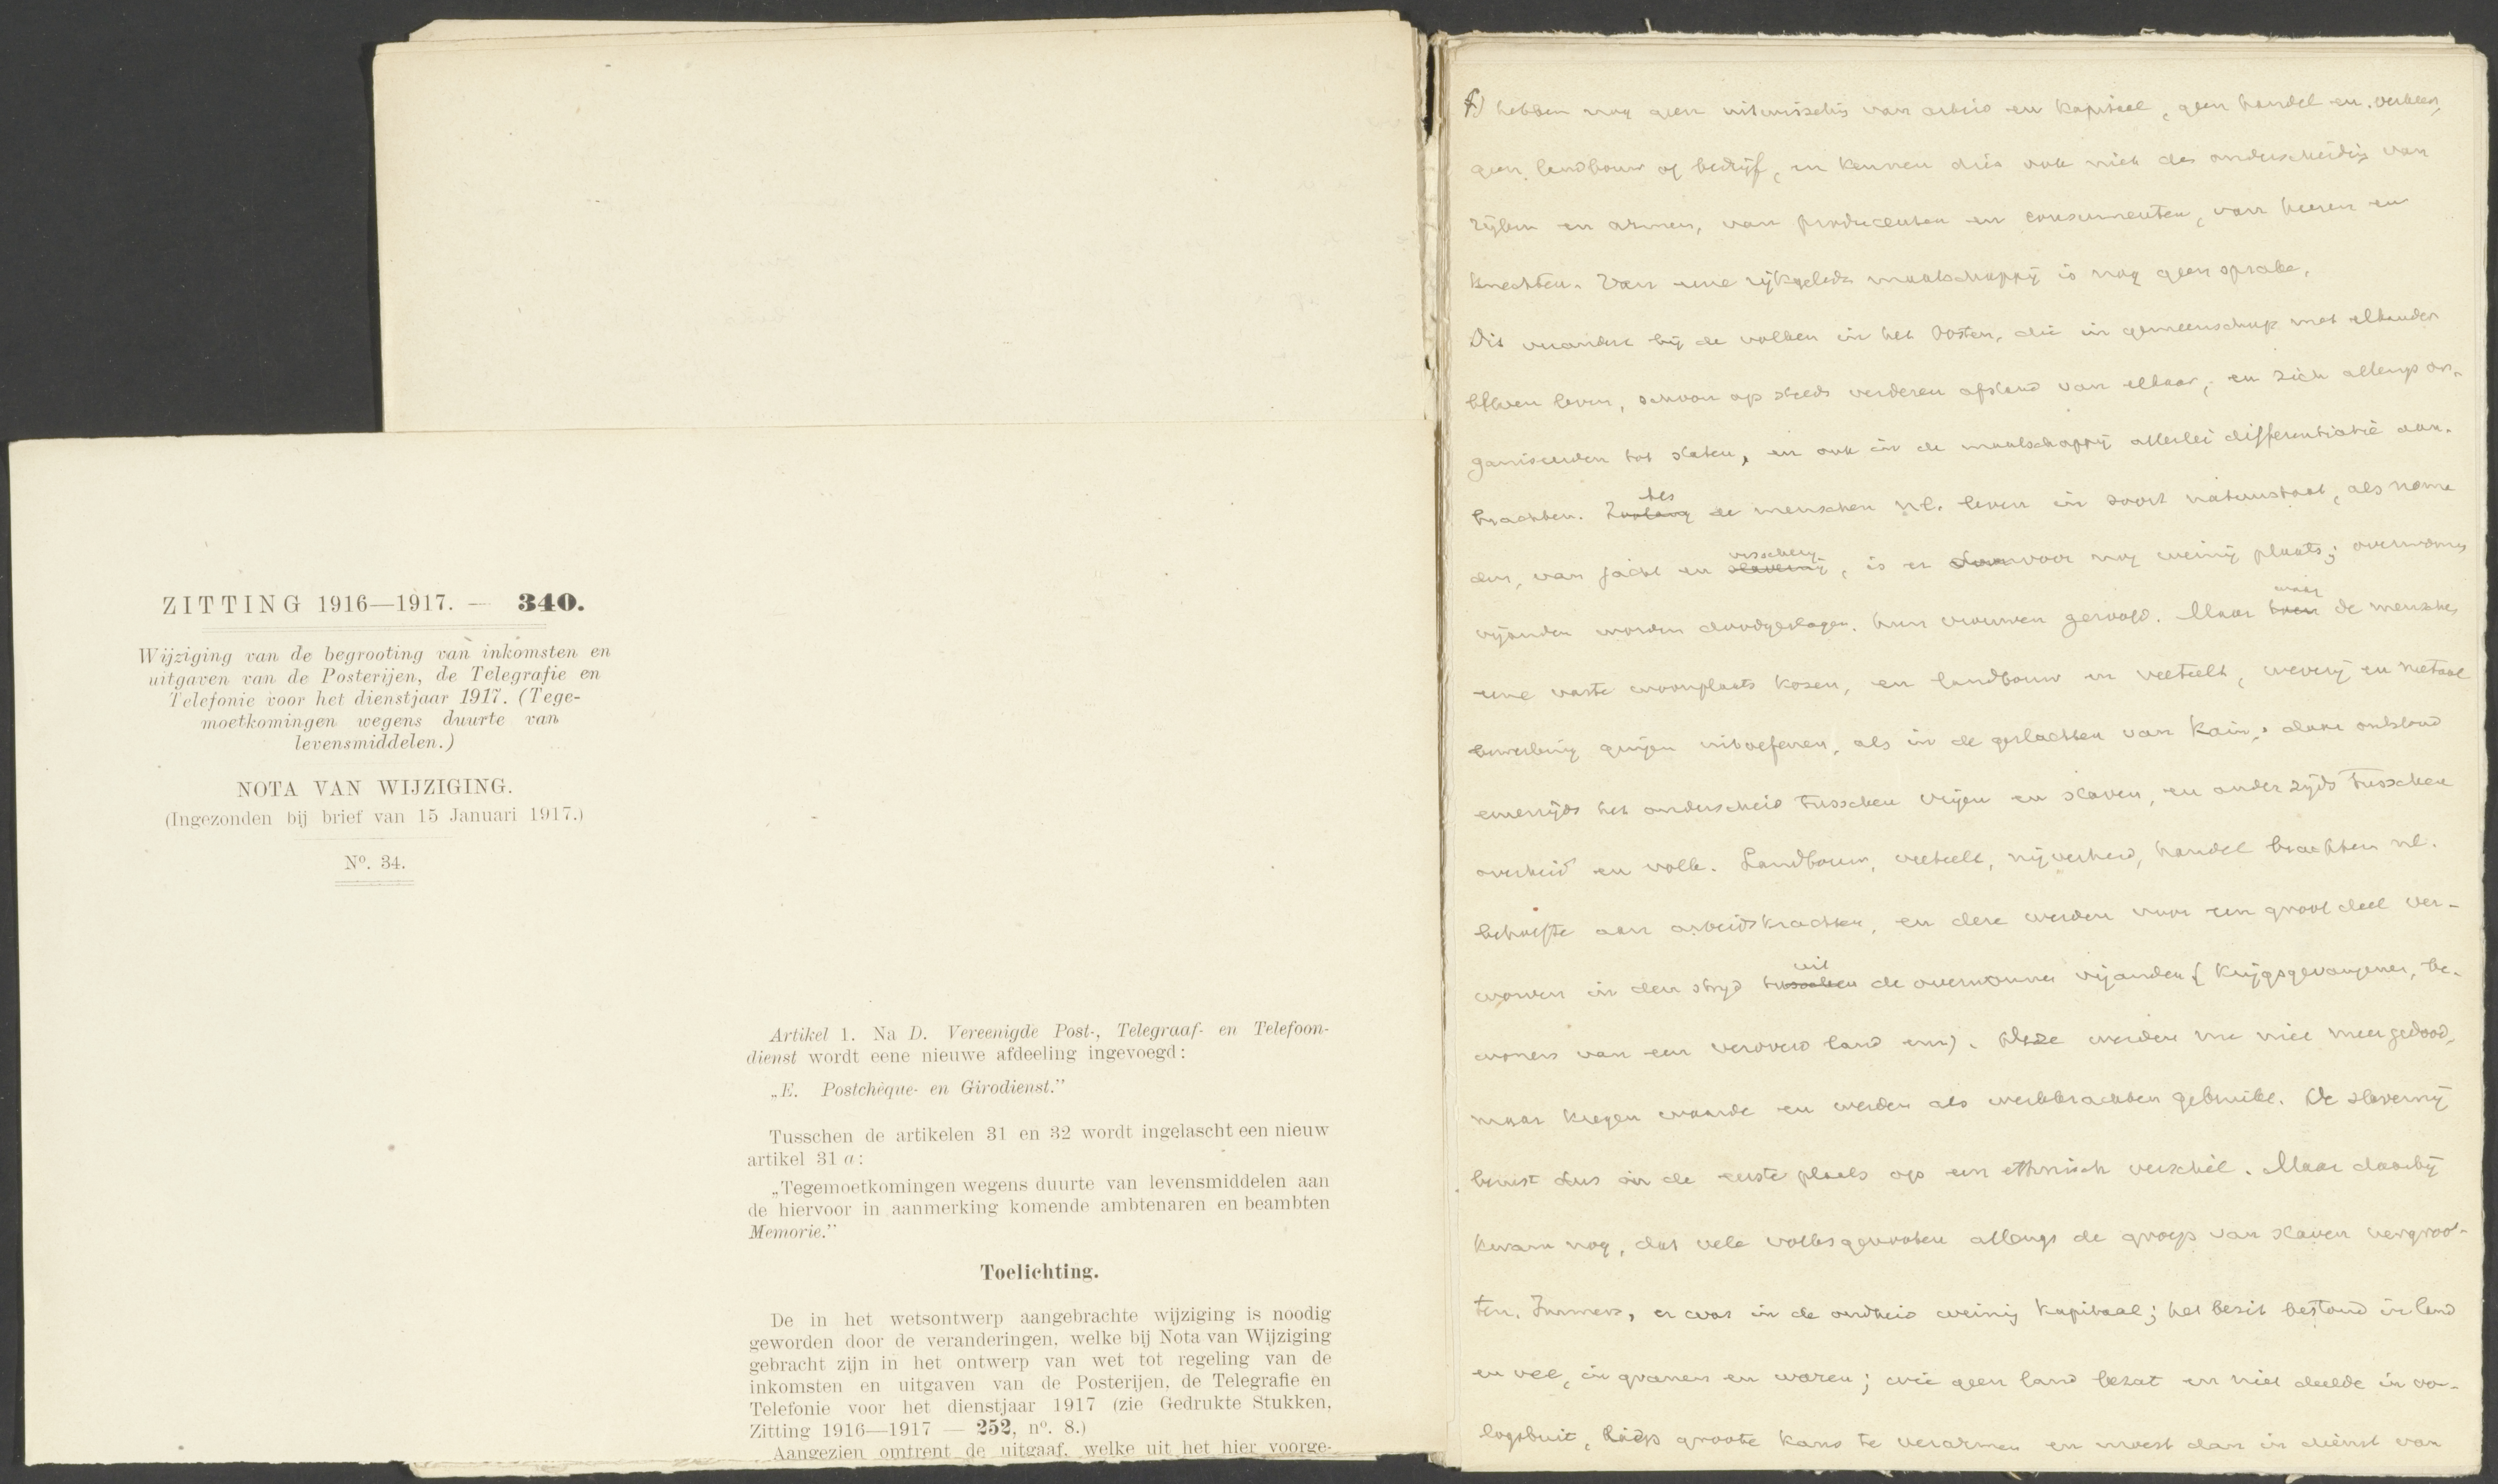 ZITTING 1916—1917. — 340.
Wijziging van de begrooting van inkomsten en
uitgaven van de Posterijen, de Telegrafie en
Telefonie voor het dienstjaar 1917. (Tege-
moetkomingen wegens duurte van
levensmiddelen.)
NOTA VAN WIJZIGING.
(Ingezonden bij brief van 15 Januari 1917.)
Nº. 34.
Artikel 1. Na D. Vereenigde Post-, Telegraaf- en Telefoon-
dienst wordt eene nieuwe afdeeling ingevoegd:
„E. Postchèque- en Girodienst.”
Tusschen de artikelen 31 en 32 wordt ingelascht een nieuw
artikel 31 a:
„Tegemoetkomingen wegens duurte van levensmiddelen aan
de hiervoor in aanmerking komende ambtenaren en beambten
Memorie.”
Toelichting.
De in het wetsontwerp aangebrachte wijziging is noodig
geworden door de veranderingen, welke bij Nota van Wijziging
gebracht zijn in het ontwerp van wet tot regeling van de
inkomsten en uitgaven van de Posterijen, de Telegrafie en
Telefonie voor het dienstjaar 1917 (zie Gedrukte Stukken,
Zitting 1916—1917 — 252, nº. 8.)
Aangezien omtrent de uitgaaf, welke uit het hier voorge-
hebben nog geen uitwisseling van arbeid en kapitaal, geen handel en verkeer,
geen landbouw of bedrijf, en kennen dus ook niet de onderscheiding van
rijken en armen, van producenten en consumenten, van heeren en
knechten. Van eene rijkgelede maatschappij is nog geen sprake.
Dit verandert bij de volken in het Oosten, die in gemeenschap met elkander
bleven leven, schoon op steeds verderen afstand van elkaar, en zich allengs or-
ganiseerden tot staten, en ook in de maatschappij allerlei differentiatie aan-
brachten. Zoolang de menschen nl. leven in soort natuurstaat, als noma
den, van jacht en visscherij, is er daarvoor nog weinig plaats; overwonnen
vijanden worden doodgeslagen, hun vrouwen geroofd. Maar waar de menschen
eene vaste woonplaats kozen, en landbouw en veeteelt, weverij en metaal
bewerking gingen uitoefenen, als in de geslachten van Kain, daar ontstond
eenerzijds het onderscheid tusschen vrijen en slaven, en anderzijds tusschen
overheid en volk. Landbouw, veeteelt, nijverheid, handel brachten nl.
behoefte aan arbeidskrachten, en deze werden voor een groot deel ver-
wonnen in den strijd uit de overwonnen vijanden (krijgsgevangenen, be-
woners van een veroverd land enz). Deze werden nu niet meer gedood,
maar kregen waarde en werden als werkkrachten gebruikt. De slavernij
berust dus in de eerste plaats op een ethnisch verschil. Maar daarbij
kwam nog, dat vele volksgenooten allengs de groep van slaven vergroot-
ten. Immers, er was in de oudheid weinig kapitaal; het bezit bestond in land
en vee, in granen en waren; wie geen land bezat en niet deelde in oor-
logsbuit, liep groote kans te verarmen en moest dan in dienst van